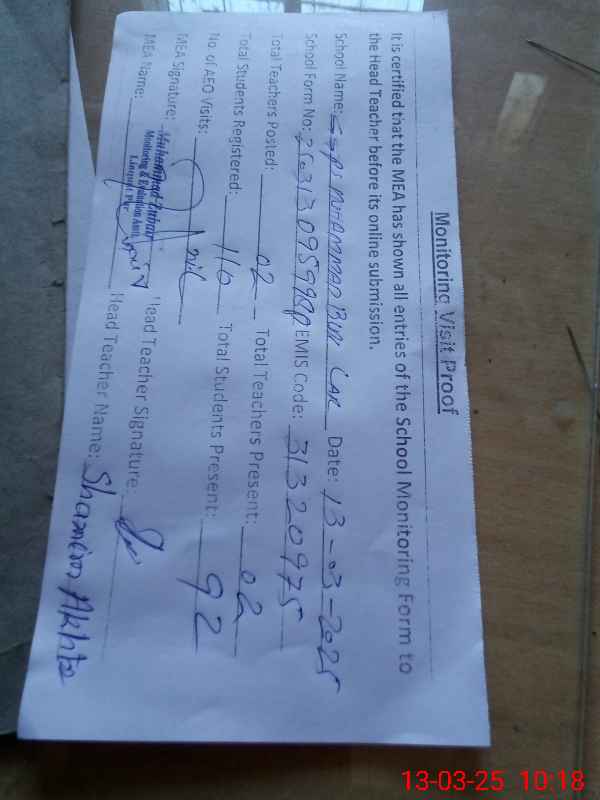 Monitoring Visit Proof
It is certified that the MEA has shown all entries of the School Monitoring Form to
the Head Teacher before its online submission.
School Name: GGPS MUHAMMAD BUX Date: 13-03-2025
School Form No: EMIS Code: 31320975
Total Teachers Posted: 02 Total Teachers Present: 02
Total Students Registered: 116 Total Students Present: 92
No. of AEO Visits:
MEA Signature: Head Teacher Signature:
MEA Name: Muhammad Zubair Head Teacher Name: Shamim Akhtar
Monitoring & Evaluation Asstt
Liaquat Pur
13-03-25 10:18